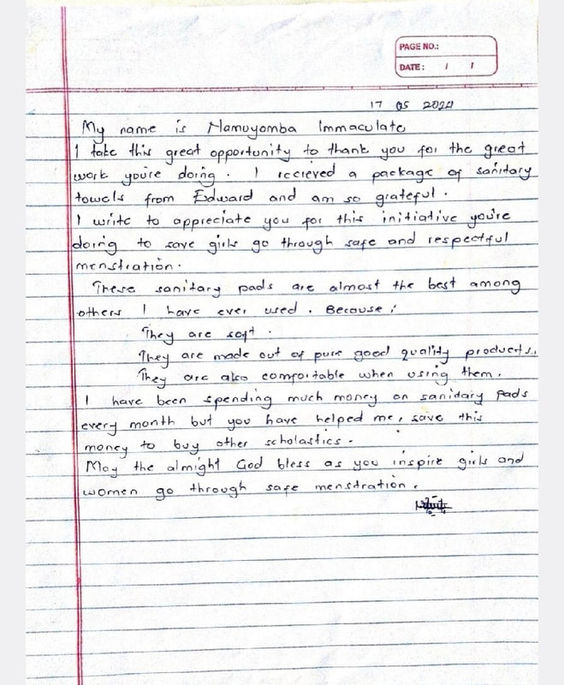 PAGE NO.:
DATE: / /
17 05 2024
My name is Namuyomba Immaculate
I take this great opportunity to thank you for the great
work you're doing. I recieved a package of sanitary
towels from Edward and am so grateful.
I write to appreciate you for this initiative you're
doing to save girls go through safe and respectful
menstration.
These sanitary pads are almost the best among
others I have ever used. Because;
They are soft.
They are made out of pure good quality products.
They are also comfortable when using them.
I have been spending much money on sanitary pads
every month but you have helped me, save this
money to buy other scholastics.
May the almight God bless as you inspire girls and
women go through safe menstration.